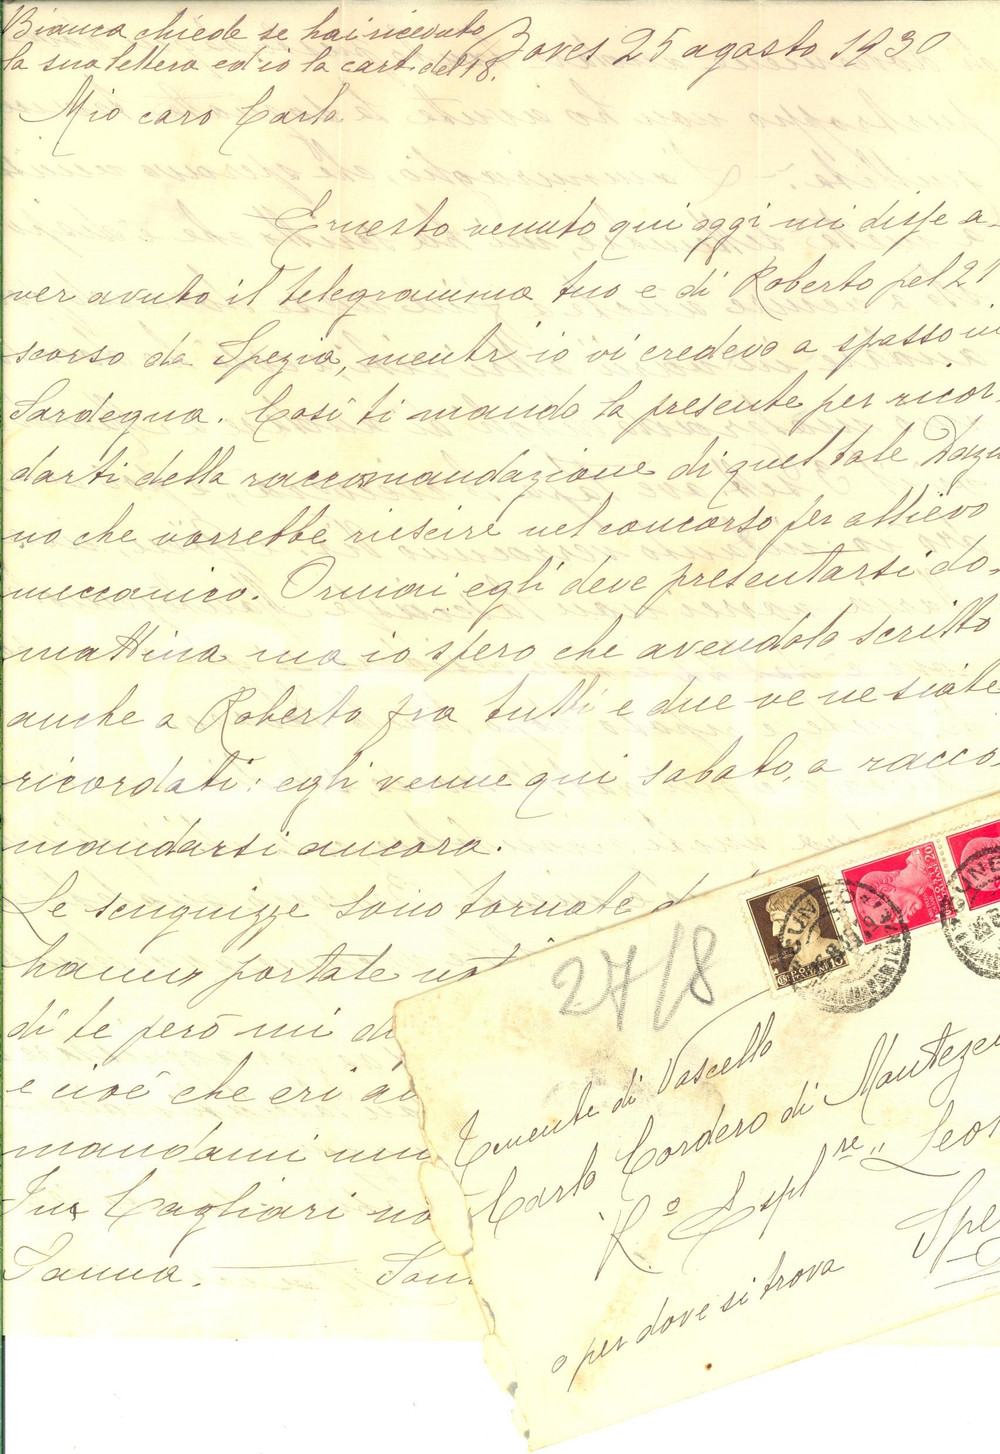 Bianca chiede se hai ricevuto
la sua lettera ed io la cart. del 18.
Boves 25 agosto 1930
Mio caro Carlo
Ernesto venuto qui oggi mi disse a-
ver avuto il telegramma tuo e di Roberto pel 21
scorso da Spezia, mentr'io vi credevo a spasso in
Sardegna. Così ti mando la presente per ricor-
darti della raccomandazione di quel tale Dazia
no che vorrebbe riescire nel concorso per allievo
meccanico. Ormai egli deve presentarsi do-
mattina ma io spero che avendolo scritto
anche a Roberto fra tutti e due ve ne siate
ricordati: egli venne qui sabato, a racco-
mandarsi ancora.
Le sono tornate
hanno portate
di te però mi
e cioè che eri
mandami
Cagliari
27/8
Tenente di Vascello
Carlo Cordero di Montezem
R.o Espl.re "Leon
Spe
o per dove si trova